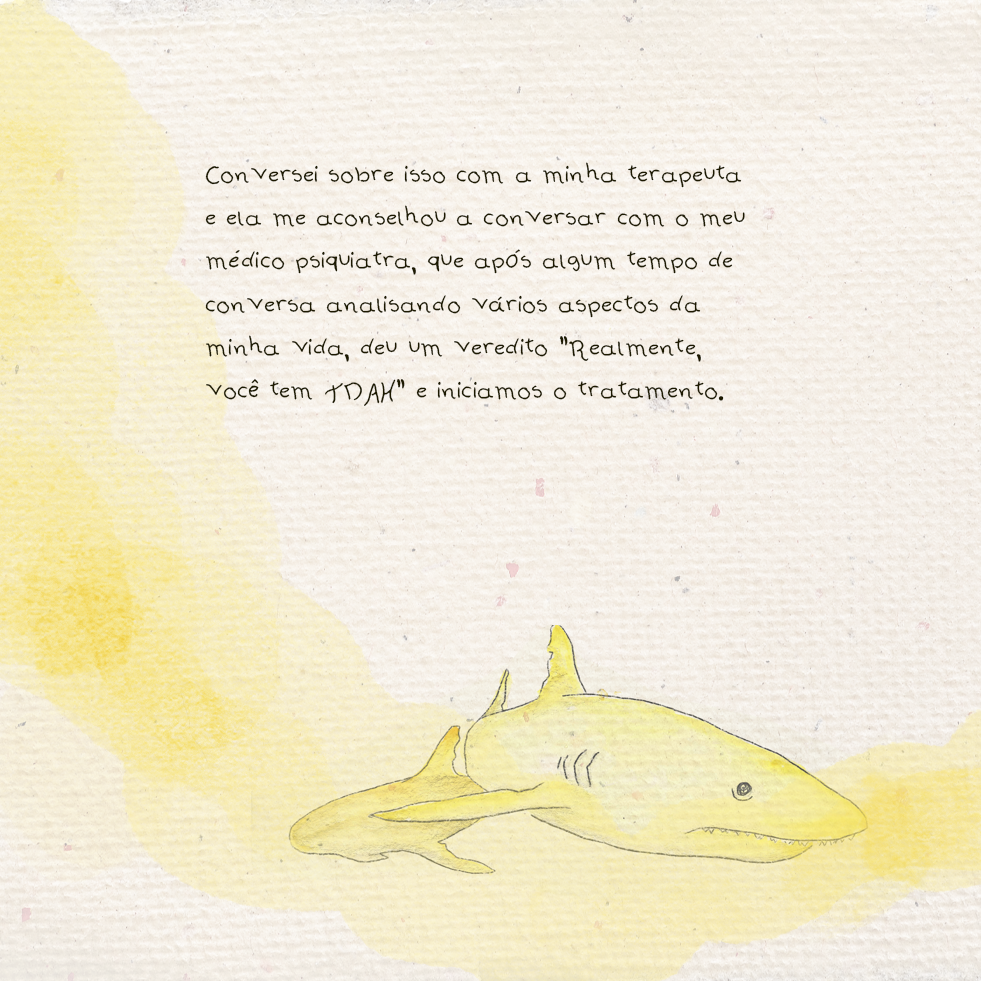 Conversei sobre isso com a minha terapeuta
e ela me aconselhou a conversar com o meu
médico psiquiatra, que após algum tempo de
conversa analisando vários aspectos da
minha vida, deu um veredito "Realmente,
você tem TDAH" e iniciamos o tratamento.